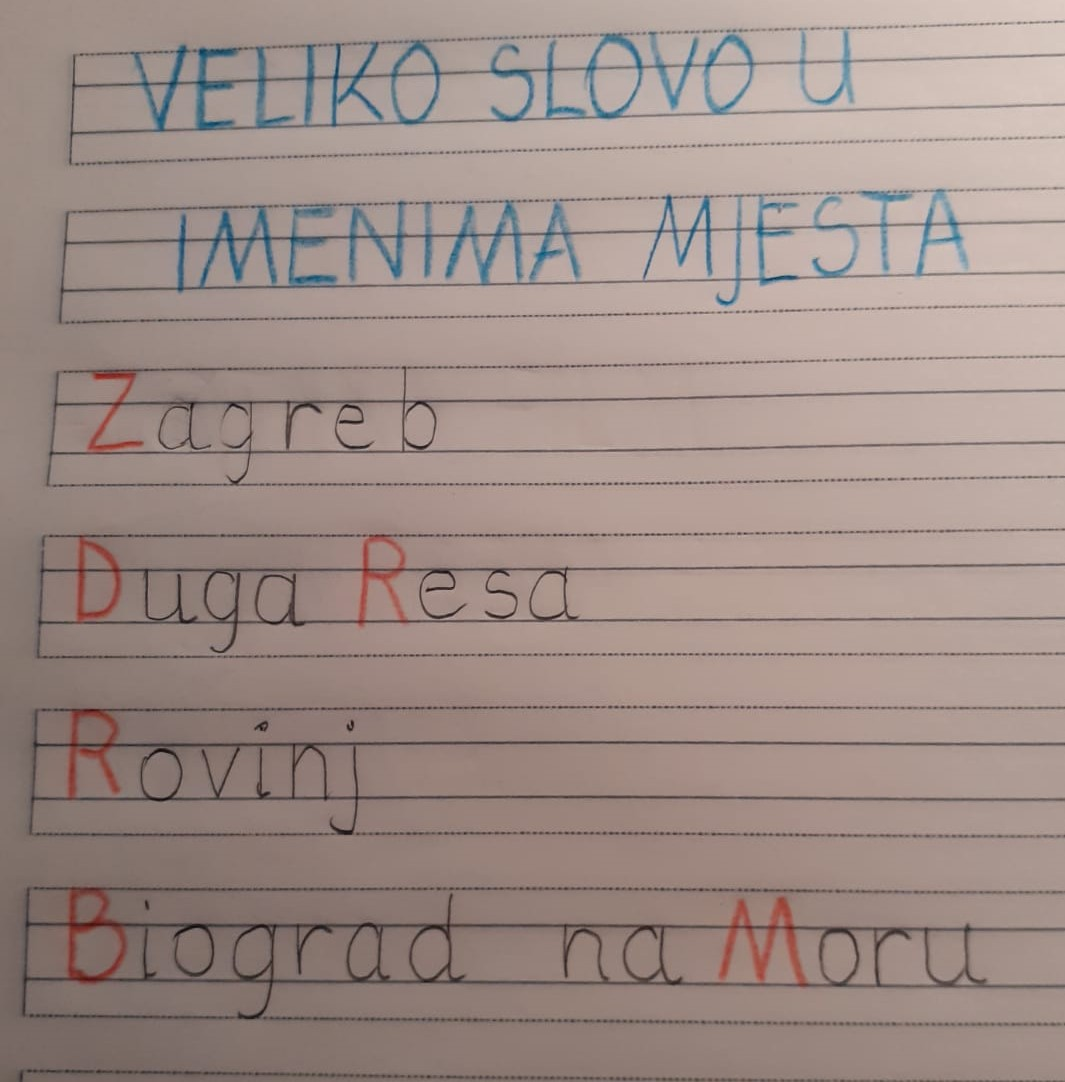 VELIKO SLOVO U
IMENIMA MJESTA
Zagreb
Duga Resa
Rovinj
Biograd na Moru